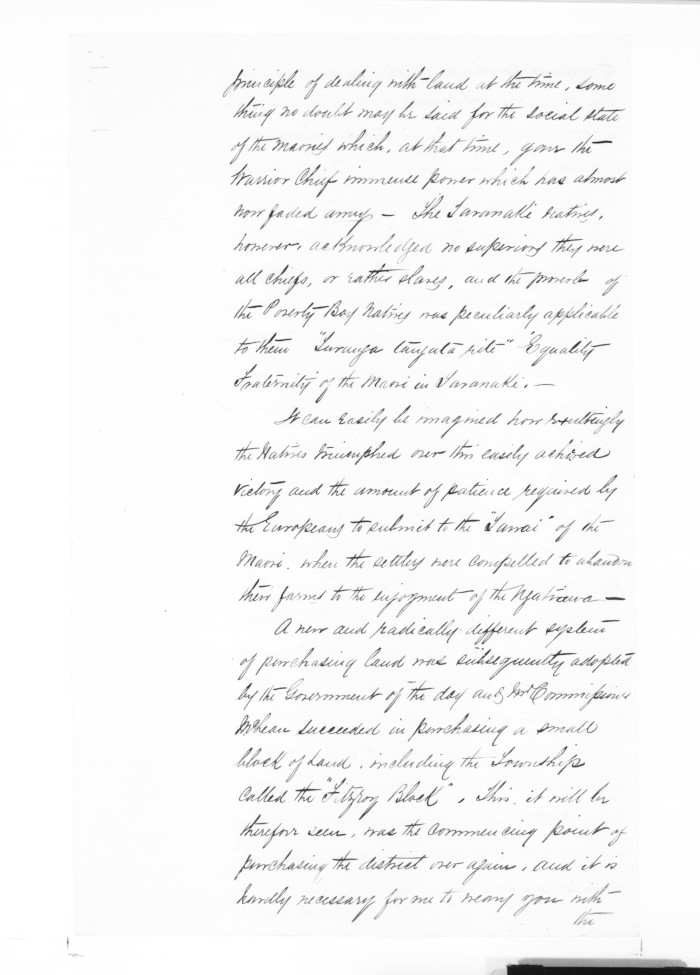 principle of dealing with land at the time, some
thing no doubt may be said for the social state
of the Maories which, at that time, gave the
Warrior Chief immense power which has almost
now faded away — The Taranaki natives,
however, acknowledged no superiors they were
all chiefs, or rather slaves, and the proverb of
the Poverty Bay Natives was peculiarly applicable
to them "Turanga tangata rite" "Equality
Fraternity" of the Maori in Taranaki. —
It can easily be imagined how exultingly
the Natives triumphed over this easily achieved
victory and the amount of patience required by
the Europeans to submit to the of the
Maori. when the settlers were compelled to abandon
their farms to the enjoyment of the Ngatiawa —
A new and radically different system
of purchasing land was subsequently adopted
by the Government of the day and Mr Commissioner
McLean succeeded in purchasing a small
block of Land, including the Township
called the "Fitzroy Block". This, it will be
therefore seen, was the commencing point of
purchasing the district over again, and it is
hardly necessary for me to weary you with
the